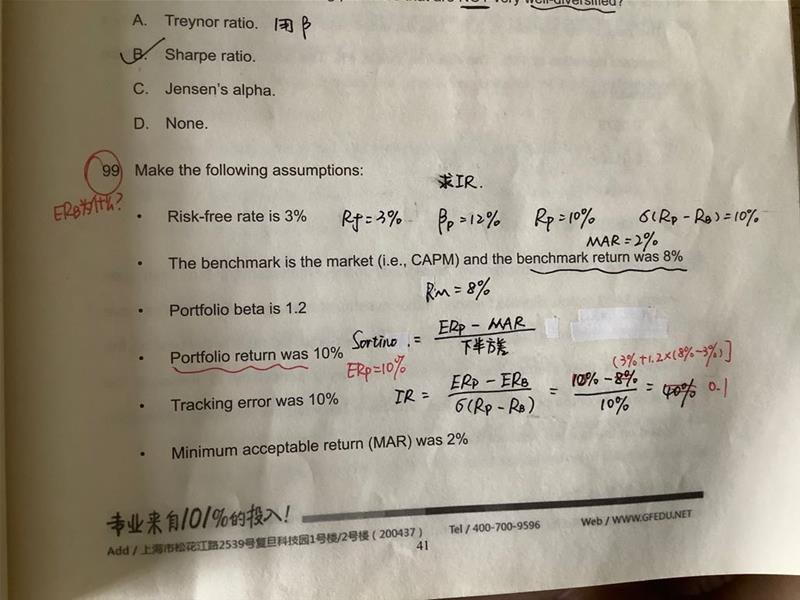 NOT very well-diversified?
A. Treynor ratio. 用 β
B. Sharpe ratio.
C. Jensen's alpha.
D. None.
99 Make the following assumptions:
求IR.
ERB为什么?
• Risk-free rate is 3% Rf=3% βp=12% Rp=10% σ(Rp-RB)=10%
MAR=2%
• The benchmark is the market (i.e., CAPM) and the benchmark return was 8%
Rm=8%
• Portfolio beta is 1.2
Sortino = (ERp-MAR)/下半方差
• Portfolio return was 10%
ERp=10%
(3%+1.2×(8%-3%)]
IR = (ERp-ERB)/σ(Rp-RB) = (10%-8%)/10% = 40% 0.1
• Tracking error was 10%
• Minimum acceptable return (MAR) was 2%
专业来自101%的投入!
Add / 上海市松花江路2539号复旦科技园1号楼/2号楼(200437) Tel / 400-700-9596 Web / WWW.GFEDU.NET
41